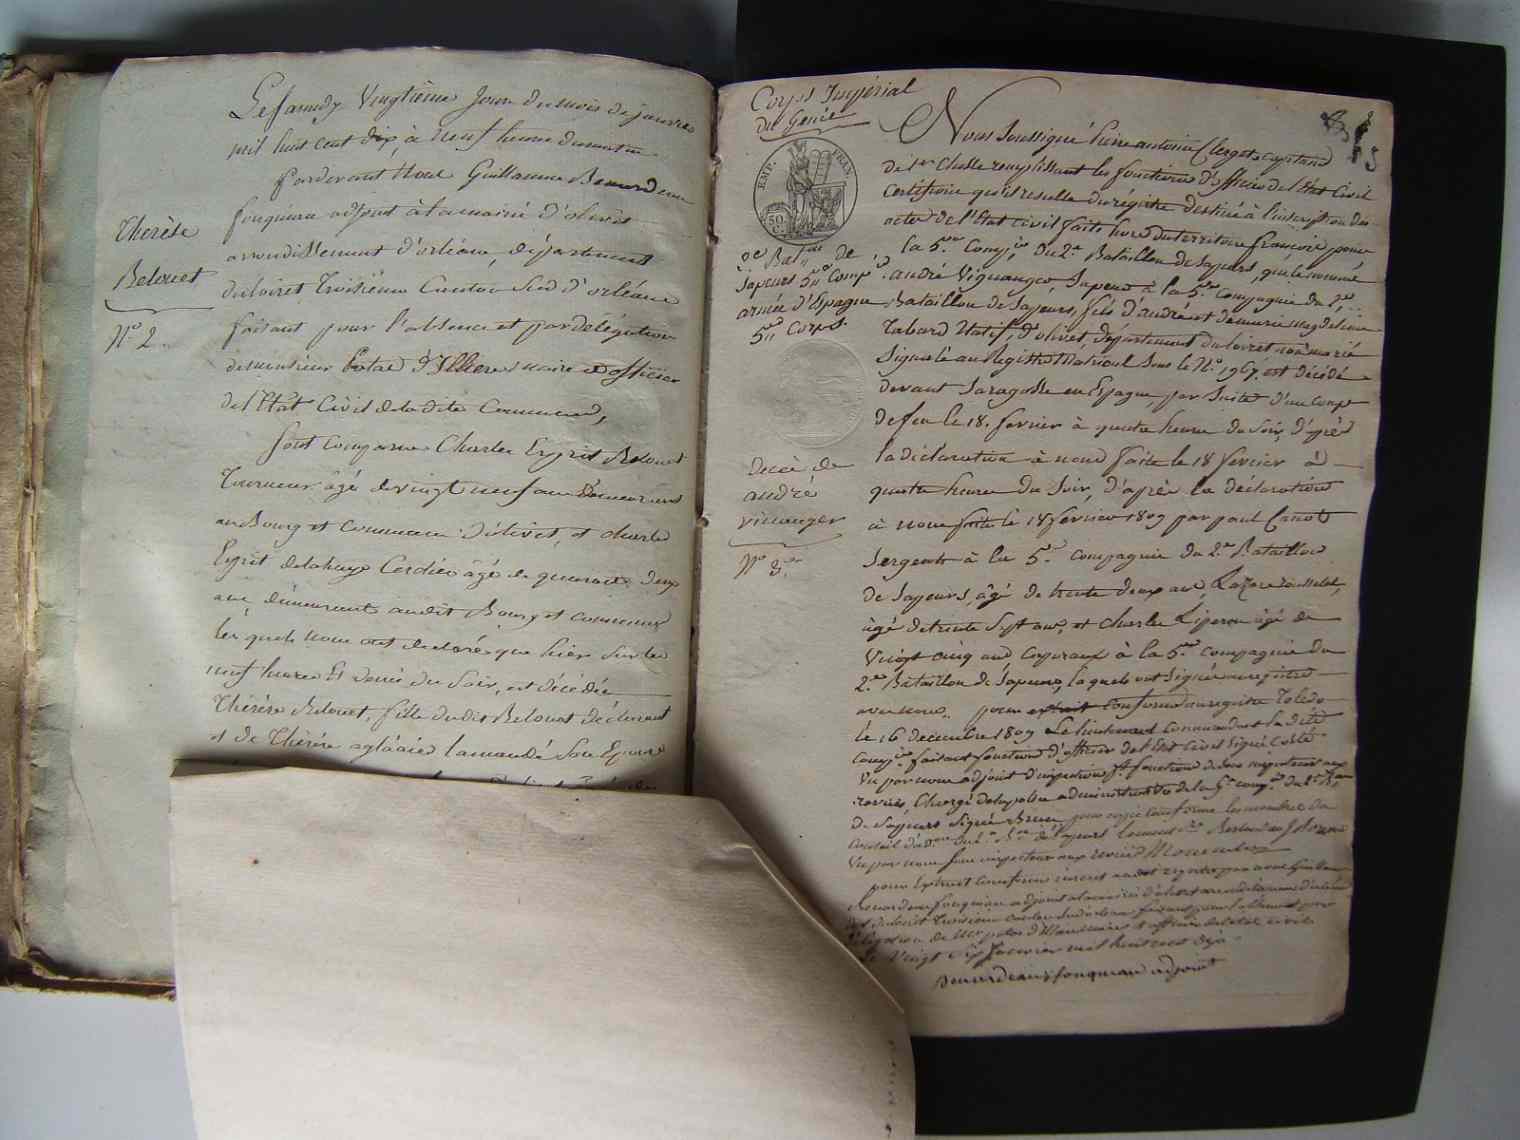 Le samedy Vingtième Jour du mois de janvier
mil huit cent dix, à neuf heure du matin
Pardevant Nous Guillaume Benardeau
fouqueau adjoint à la mairie d'olivet
arrondissement d'orléans, département
du loiret Troisième Canton Sud d'orléans
faisant pour l'absence et par délégation
de monsieur d'Illiers maire et officier
de l'Etat Civil de la dite Commune,
Sont comparus Charles Esprit Belouet
Tourneur âgé de vingt neuf ans Demeurant
au Bourg et commune D'olivet, et charles
Esprit delahaye Cordier âgé de quarante deux
ans, demeurant audit Bourg et commune
les quels nous ont declaré que hier sur les
neuf heures Et demie du Soir, est décédée
Thérèse Belouet, fille dudit Belouet déclarant
et de Thérèse aglaée lamandé Son Epouse
Thérèse
Belouet
N.º 2.
Corps Impérial
du Génie
EMP. FRAN.
50.
C.
2.e Bat.on de
Sapeurs 5.e Comp.e
armée d'Espagne
5.e Corps.
Décès de
andré
vignanger
N.º 3.
Nous Soussigné Pierre antoine Clerget Capitaine
de 1.re Classe remplissant les fonctions d'officier de l'Etat Civil
Certifions qu'il resulte du régistre destiné à l'inscription des
actes de l'Etat civil faits hors du territoire français, pour
la 5.e Comp.ie du 2.e Bataillon de Sapeurs, que le nommé
andré Vignanger, Sapeur à la 5.e Compagnie du 2.e
Bataillon de Sapeurs, fils d'andré et de marie magdeleine
Tabard Natif, d'olivet, département du loiret non marié
Signalé au Registre Matricul Sous le N.º 1967. est décédé
devant Saragosse en Espagne, par Suite d'un coup
de feu le 18. fevrier à quatre heure du Soir, d'après
la déclaration à nous faite le 18 fevrier à
quatre heure du Soir, d'après la déclaration
à nous faite le 18 fevrier 1809 par paul Canot
Sergent à la 5.e compagnie du 2.e Bataillon
de Sapeurs, âgé de trente deux ans, Lazare
âgé de trente Sept ans, et Charles Liperon âgé de
Vingt cinq ans caporaux à la 5.e compagnie du
2.e Bataillon de Sapeurs, lesquels ont Signé au registre
avec nous. pour extrait conforme au registre Toledo
le 16 decembre 1809 Le lieutenant commandant la dite
comp.e faisant fonction d'officier de l'Etat Civil Signé Costé
Vu par nous adjoint d'inspection f.t fonction de Sous inspecteur aux
revues, Chargé de la police administrative de la 5.e comp.e du 2.e B.on
de Sapeurs Signé pour copie conforme les membres du
Conseil d'ad.on du 2.e B.on de Sapeurs
Vu par nous Sous inspecteur aux revues
pour Extrait Conforme inscrit au dit registre par nous Guillaume
Benardeau fouqueau adjoint à la mairie d'olivet arrondissement d'orléans
dép.t du loiret Troisième Canton Sud d'orléans faisant pour l'absence et par
délégation de M.r d'Illiers maire et officier de l'état civil
le Vingt Six Janvier mil huit cent dix
Benardeau fouqueau adjoint